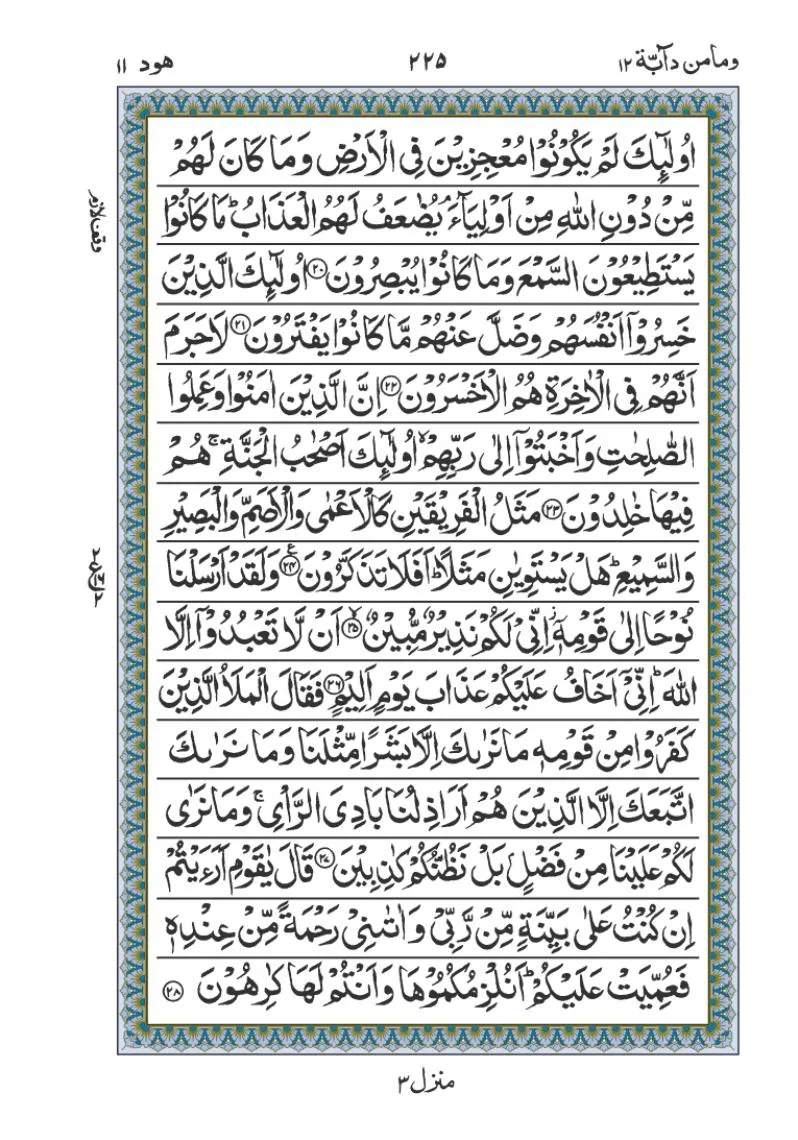 وما من دآبّة ١٢ ٢٢٥ هود ١١
اُولٰٓئِكَ لَمْ يَكُوْنُوْا مُعْجِزِيْنَ فِى الْاَرْضِ وَمَا كَانَ لَهُمْ
مِّنْ دُوْنِ اللّٰهِ مِنْ اَوْلِيَآءَ ۘ يُضٰعَفُ لَهُمُ الْعَذَابُ ؕ مَا كَانُوْا
يَسْتَطِيْعُوْنَ السَّمْعَ وَمَا كَانُوْا يُبْصِرُوْنَ ﴿۲۰﴾ اُولٰٓئِكَ الَّذِيْنَ
خَسِرُوْۤا اَنْفُسَهُمْ وَضَلَّ عَنْهُمْ مَّا كَانُوْا يَفْتَرُوْنَ ﴿۲۱﴾ لَا جَرَمَ
اَنَّهُمْ فِى الْاٰخِرَةِ هُمُ الْاَخْسَرُوْنَ ﴿۲۲﴾ اِنَّ الَّذِيْنَ اٰمَنُوْا وَعَمِلُوا
الصّٰلِحٰتِ وَاَخْبَتُوْۤا اِلٰى رَبِّهِمْ ۙ اُولٰٓئِكَ اَصْحٰبُ الْجَنَّةِ ۚ هُمْ
فِيْهَا خٰلِدُوْنَ ﴿۲۳﴾ مَثَلُ الْفَرِيْقَيْنِ كَالْاَعْمٰى وَالْاَصَمِّ وَالْبَصِيْرِ
وَالسَّمِيْعِ ؕ هَلْ يَسْتَوِيٰنِ مَثَلًا ؕ اَفَلَا تَذَكَّرُوْنَ ﴿۲۴﴾ ع وَلَقَدْ اَرْسَلْنَا
نُوْحًا اِلٰى قَوْمِهٖۤ ز اِنِّىْ لَكُمْ نَذِيْرٌ مُّبِيْنٌ ﴿۲۵﴾ ۙ اَنْ لَّا تَعْبُدُوْۤا اِلَّا
اللّٰهَ ؕ اِنِّىْۤ اَخَافُ عَلَيْكُمْ عَذَابَ يَوْمٍ اَلِيْمٍ ﴿۲۶﴾ فَقَالَ الْمَلَاُ الَّذِيْنَ
كَفَرُوْا مِنْ قَوْمِهٖ مَا نَرٰىكَ اِلَّا بَشَرًا مِّثْلَنَا وَمَا نَرٰىكَ
اتَّبَعَكَ اِلَّا الَّذِيْنَ هُمْ اَرَاذِلُنَا بَادِىَ الرَّاْىِ ۚ وَمَا نَرٰى
لَكُمْ عَلَيْنَا مِنْ فَضْلٍۭ بَلْ نَظُنُّكُمْ كٰذِبِيْنَ ﴿۲۷﴾ قَالَ يٰقَوْمِ اَرَءَيْتُمْ
اِنْ كُنْتُ عَلٰى بَيِّنَةٍ مِّنْ رَّبِّىْ وَاٰتٰىنِىْ رَحْمَةً مِّنْ عِنْدِهٖ
فَعُمِّيَتْ عَلَيْكُمْ ؕ اَنُلْزِمُكُمُوْهَا وَاَنْتُمْ لَهَا كٰرِهُوْنَ ﴿۲۸﴾
وقف لازم
منزل ٣